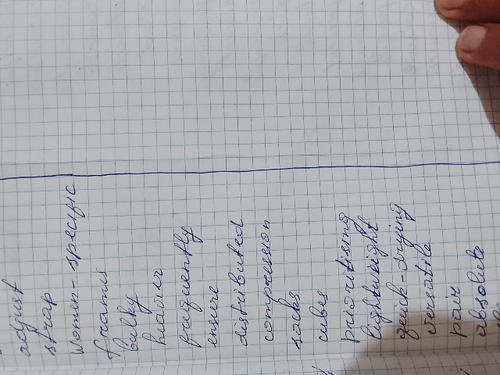 adjust
strap
Women-specific
frames
bulky
heavier
frequently
ensure
distributed
compression
sacks
cubes
prioritising
lightweight
quick-drying
versatile
pair
absolute